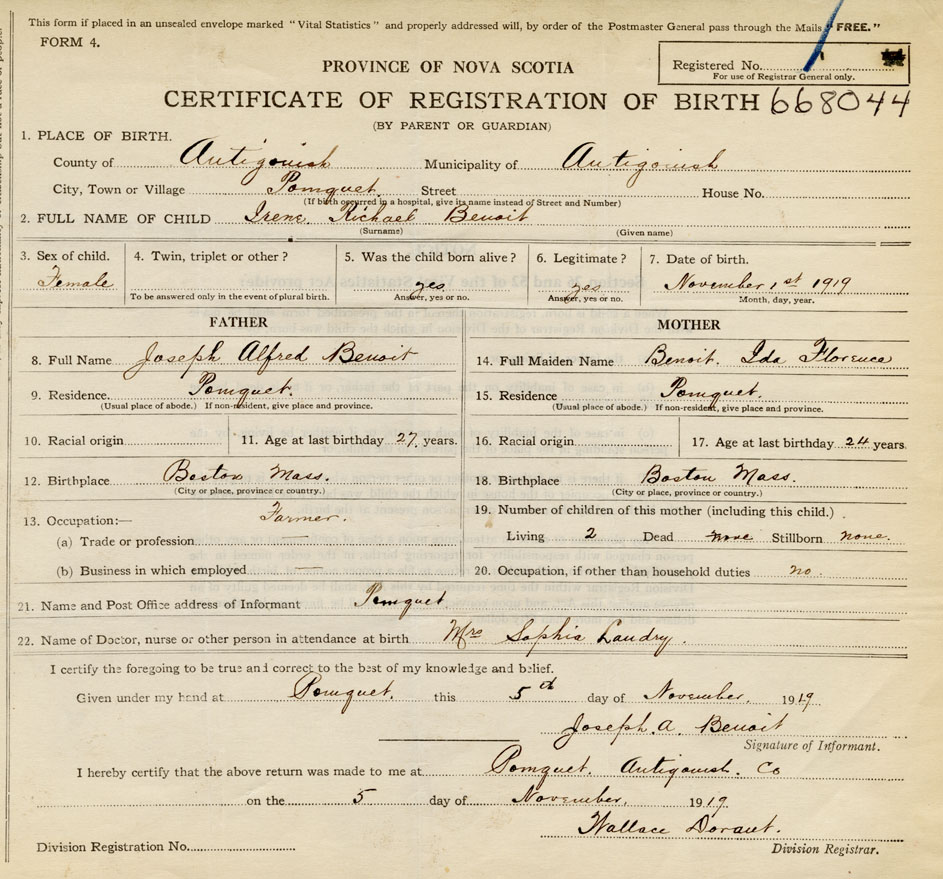 This form if placed in an unsealed envelope marked "Vital Statistics" and properly addressed will, by order of the Postmaster General pass through the Mails "FREE."
FORM 4.
Registered No.
For use of Registrar General only.
PROVINCE OF NOVA SCOTIA
CERTIFICATE OF REGISTRATION OF BIRTH 668044
(BY PARENT OR GUARDIAN)
1. PLACE OF BIRTH.
County of Antigonish Municipality of Antigonish
City, Town or Village Pomquet Street House No.
(If birth occurred in a hospital, give its name instead of Street and Number)
2. FULL NAME OF CHILD Irene Richael Benoit
(Surname) (Given name)
3. Sex of child. 4. Twin, triplet or other? 5. Was the child born alive? 6. Legitimate? 7. Date of birth.
Female yes yes November 1st 1919
To be answered only in the event of plural birth. Answer, yes or no. Answer, yes or no. Month, day, year.
FATHER MOTHER
8. Full Name Joseph Alfred Benoit 14. Full Maiden Name Benoit. Ida Florence
9. Residence. Pomquet. 15. Residence. Pomquet.
(Usual place of abode.) If non-resident, give place and province. (Usual place of abode.) If non-resident, give place and province.
10. Racial origin 11. Age at last birthday 27 years. 16. Racial origin 17. Age at last birthday 24 years.
12. Birthplace Boston Mass. 18. Birthplace Boston Mass.
(City or place, province or country.) (City or place, province or country.)
13. Occupation:— Farmer. 19. Number of children of this mother (including this child.)
(a) Trade or profession — Living 2 Dead none Stillborn none.
(b) Business in which employed — 20. Occupation, if other than household duties no.
21. Name and Post Office address of Informant Pomquet
22. Name of Doctor, nurse or other person in attendance at birth Mrs Sophia Landry.
I certify the foregoing to be true and correct to the best of my knowledge and belief.
Given under my hand at Pomquet. this 5th day of November. 1919.
Joseph. A. Benoit
Signature of Informant.
I hereby certify that the above return was made to me at Pomquet. Antigonish. Co
on the 5 day of November. 1919.
Wallace Dorant.
Division Registration No. Division Registrar.